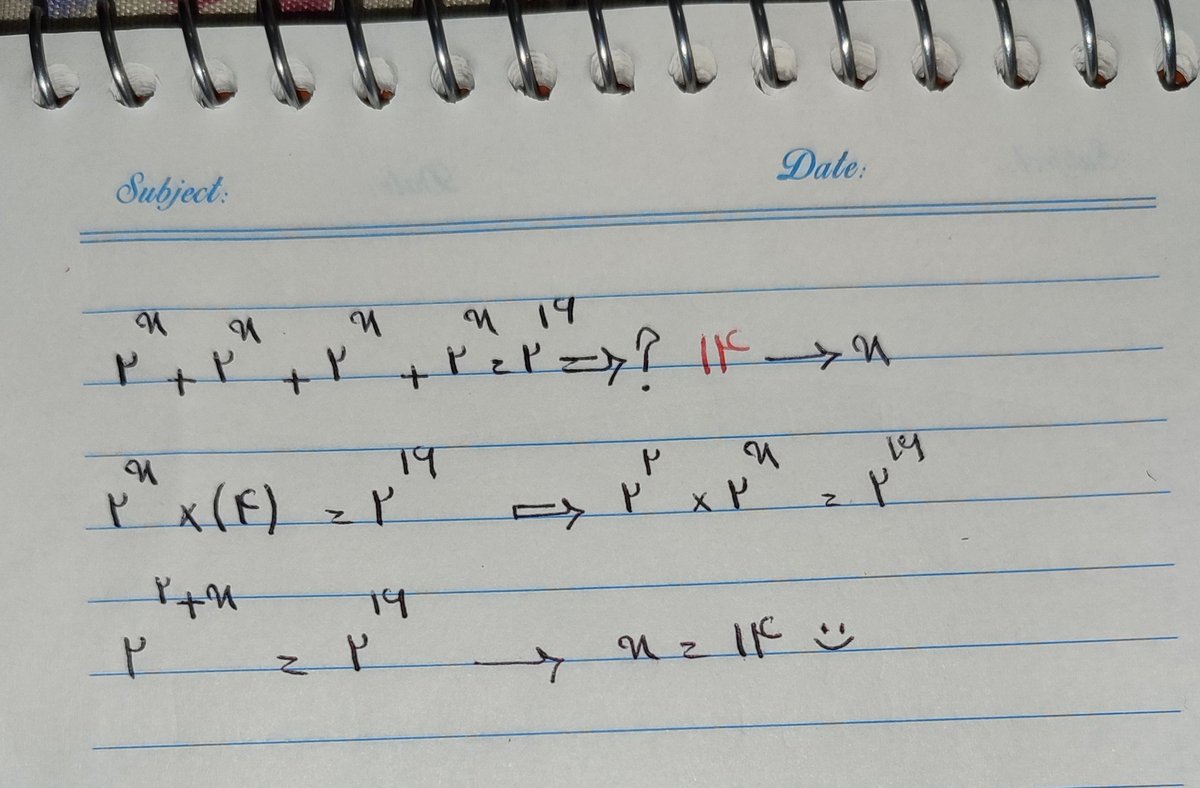 Subject: Date:
۲ˣ + ۲ˣ + ۲ˣ + ۲ˣ = ۲^۱۶ ⇒ ? ۱۴ → x
۲ˣ × (۴) = ۲^۱۶ ⇒ ۲^۲ × ۲ˣ = ۲^۱۶
۲^(۲+x) = ۲^۱۶ → x = ۱۴ :)